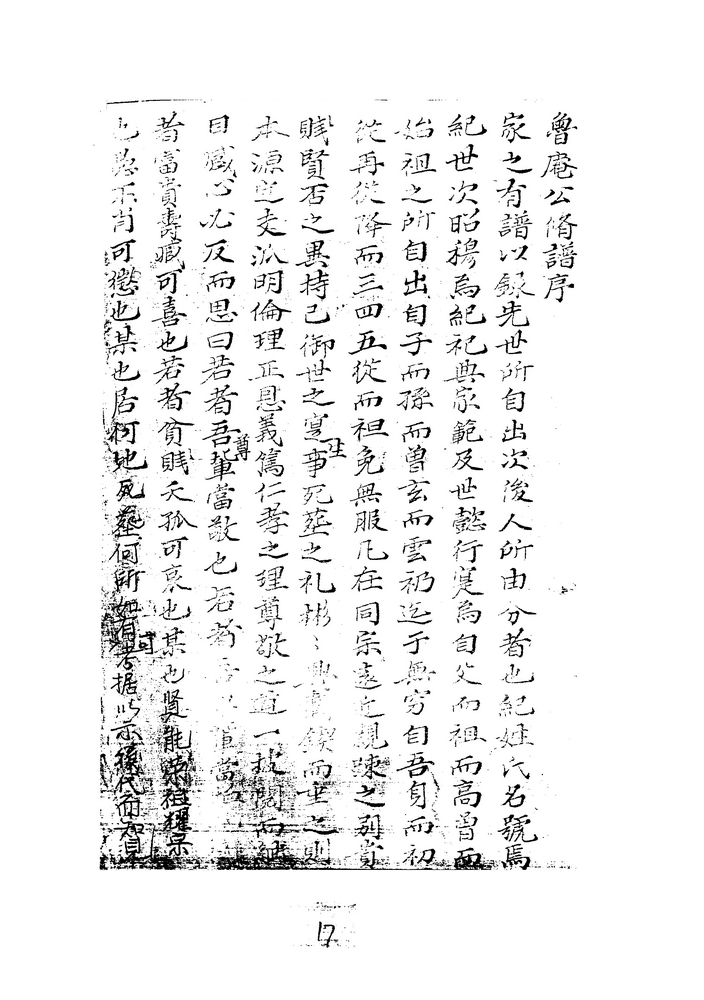 魯庵公脩譜序
家之有譜以録先世所自出次後人所由分者也紀姓氏名號焉
紀世次昭穆焉紀祀典家範及世懿行寔焉自父而祖而高曾而
始祖之所自出自子而孫而曾玄而雲礽迄于無穷自吾身而初
從再從降而三四五從而袒免無服凡在同宗遠近親踈之别貴
賎賢否之異持己御世之寔事生死塟之礼彬〻 而垂之則
本源定支派明倫理正恩義篤仁孝之理尊敬之道一披閲而継
目臧心必反而思曰若者吾輩尊當敬也若者吾 當
者富貴壽臧可喜也若者貧賎夭孤可哀也某也賢能榮祖耀宗
也愚不肖可懲也某也居何地死塟何所如有可考據以示孫代而知見
17